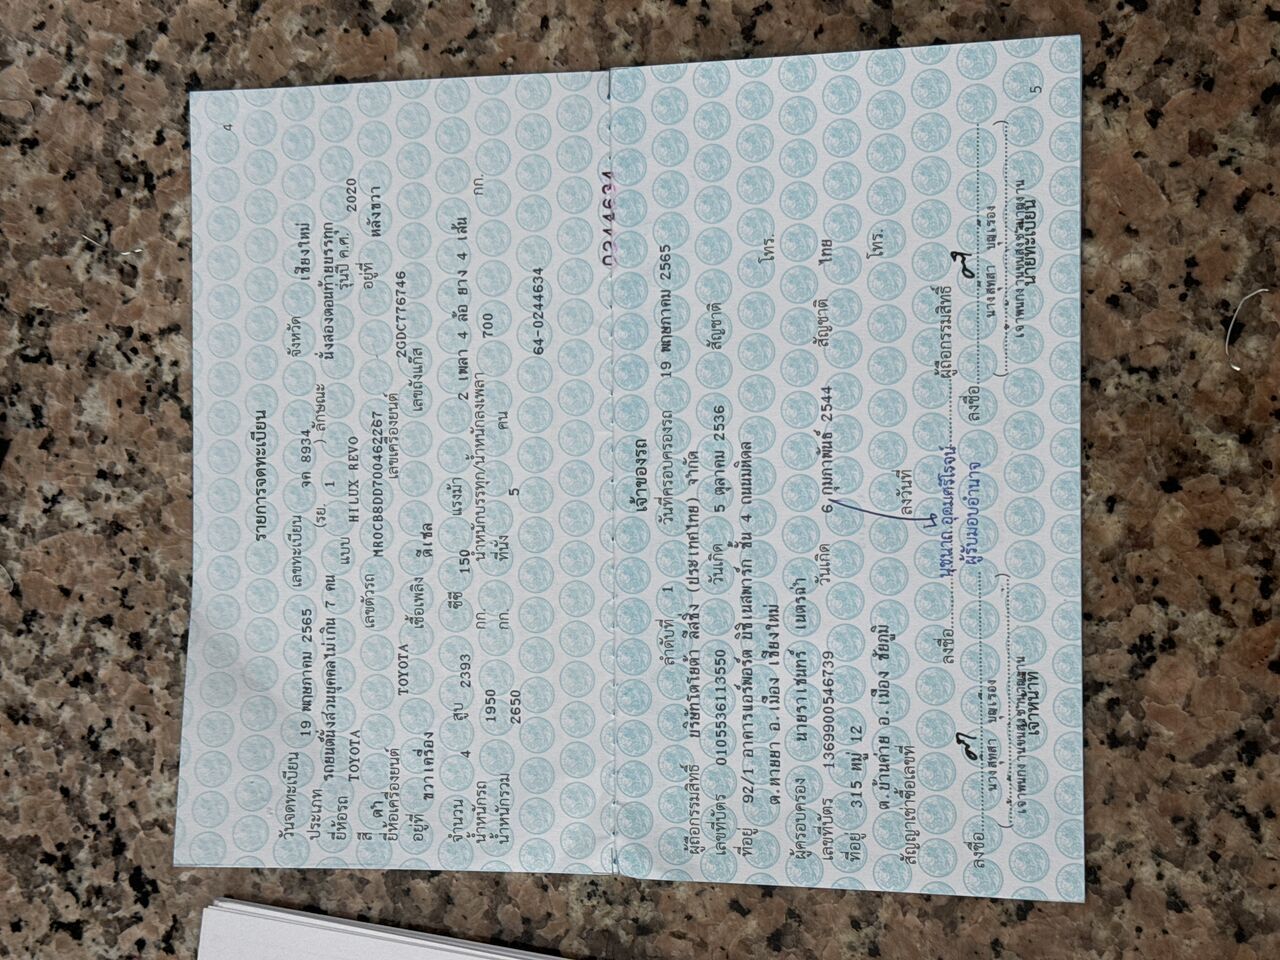 4
รายการจดทะเบียน
วันจดทะเบียน 19 พฤษภาคม 2565 เลขทะเบียน จค 8934 จังหวัด เชียงใหม่
ประเภท รถยนต์นั่งส่วนบุคคลไม่เกิน 7 คน (รย. 1 ) ลักษณะ นั่งสองตอนท้ายบรรทุก
ยี่ห้อรถ TOYOTA แบบ HILUX REVO รุ่นปี ค.ศ. 2020
สี ดำ เลขตัวรถ MR0CB8DD700462267 อยู่ที่ หลังขวา
ยี่ห้อเครื่องยนต์ TOYOTA เลขเครื่องยนต์ 2GDC776746
อยู่ที่ ขวาเครื่อง เชื้อเพลิง ดีเซล เลขถังแก๊ส
จำนวน 4 สูบ 2393 ซีซี 150 แรงม้า 2 เพลา 4 ล้อ ยาง 4 เส้น
น้ำหนักรถ 1950 กก. น้ำหนักบรรทุก/น้ำหนักลงเพลา 700 กก.
น้ำหนักรวม 2650 กก. ที่นั่ง 5 คน
64-0244634
0244634
เจ้าของรถ
ลำดับที่ 1 วันที่ครอบครองรถ 19 พฤษภาคม 2565
ผู้ถือกรรมสิทธิ์ บริษัทโตโยต้า ลีสซิ่ง (ประเทศไทย) จำกัด
เลขที่บัตร 0105536113550 วันเกิด 5 ตุลาคม 2536 สัญชาติ
ที่อยู่ 92/1 อาคารแอร์พอร์ต บิซิเนสพาร์ก ชั้น 4 ถนนมหิดล
ต.หายยา อ.เมือง เชียงใหม่ โทร.
ผู้ครอบครอง นายราเชนทร์ เนตรถ้ำ
เลขที่บัตร 1369900546739 วันเกิด 6 กุมภาพันธ์ 2544 สัญชาติ ไทย
ที่อยู่ 315 หมู่ 12
ต.บ้านค่าย อ.เมือง ชัยภูมิ โทร.
สัญญาเช่าซื้อเลขที่ ลงวันที่
ลงชื่อ นุชนาถ อุดมศรีโรจน์ ผู้ถือกรรมสิทธิ์
ผู้รับมอบอำนาจ
ลงชื่อ ลงชื่อ
นางสุทสา บุญเรือง นางสุทสา บุญเรือง
เจ้าพนักงานขนส่งชำนาญงาน เจ้าพนักงานขนส่งชำนาญงาน
เจ้าหน้าที่ นายทะเบียน
5